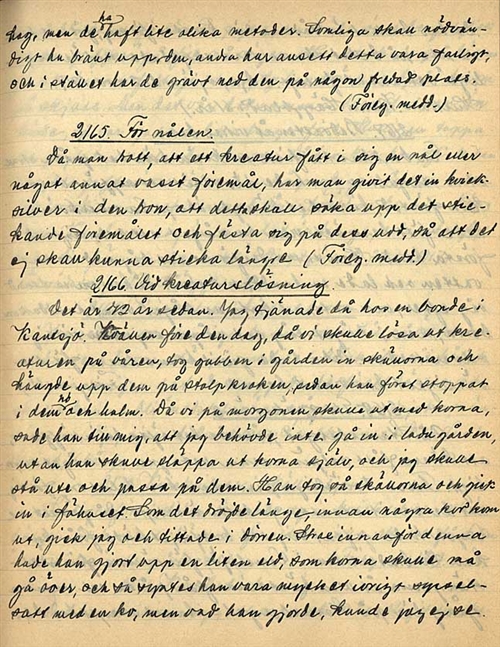 hag, men de ha haft lite olika metoder. Somliga skall nödvän-
digt ha bränt upp den, andra har ansett detta vara farligt,
och i stället har de grävt ned den på någon fredad plats.
(Föreg. medd.)
2165. För nålen.
Då man trott, att ett kreatur fått i sig en nål eller
något annat vasst föremål, har man givit det in kvick-
silver i den tron, att detta skall söka upp det stic-
kande föremålet och fästa sig på dess udd, så att det
ej skall kunna sticka längre (Föreg. medd.)
2166. Vid kreaturslösning.
Det är 42 år sedan. Jag tjänade då hos en bonde i
Kanesjö. Kvällen före den dag, då vi skulle lösa ut kre-
aturen på våren, tog gubben i gården in skällorna och
hängde upp dem på stolpkroken, sedan han först stoppat
i dem hö och halm. Då vi på morgonen skulle ut med korna,
sade han till mig, att jag behövde inte gå in i ladugården,
utan han skulle släppa ut korna själv, och jag skulle
stå ute och passa på dem. Han tog så skällorna och gick
in i fähuset. Som det dröjde länge, innan några kor kom
ut, gick jag och tittade i dörren. Strax innanför denna
hade han gjort upp en liten eld, som korna skulle må
gå över, och så syntes han vara mycket ivrigt syssel-
satt med en ko, men vad han gjorde, kunde jag ej se.